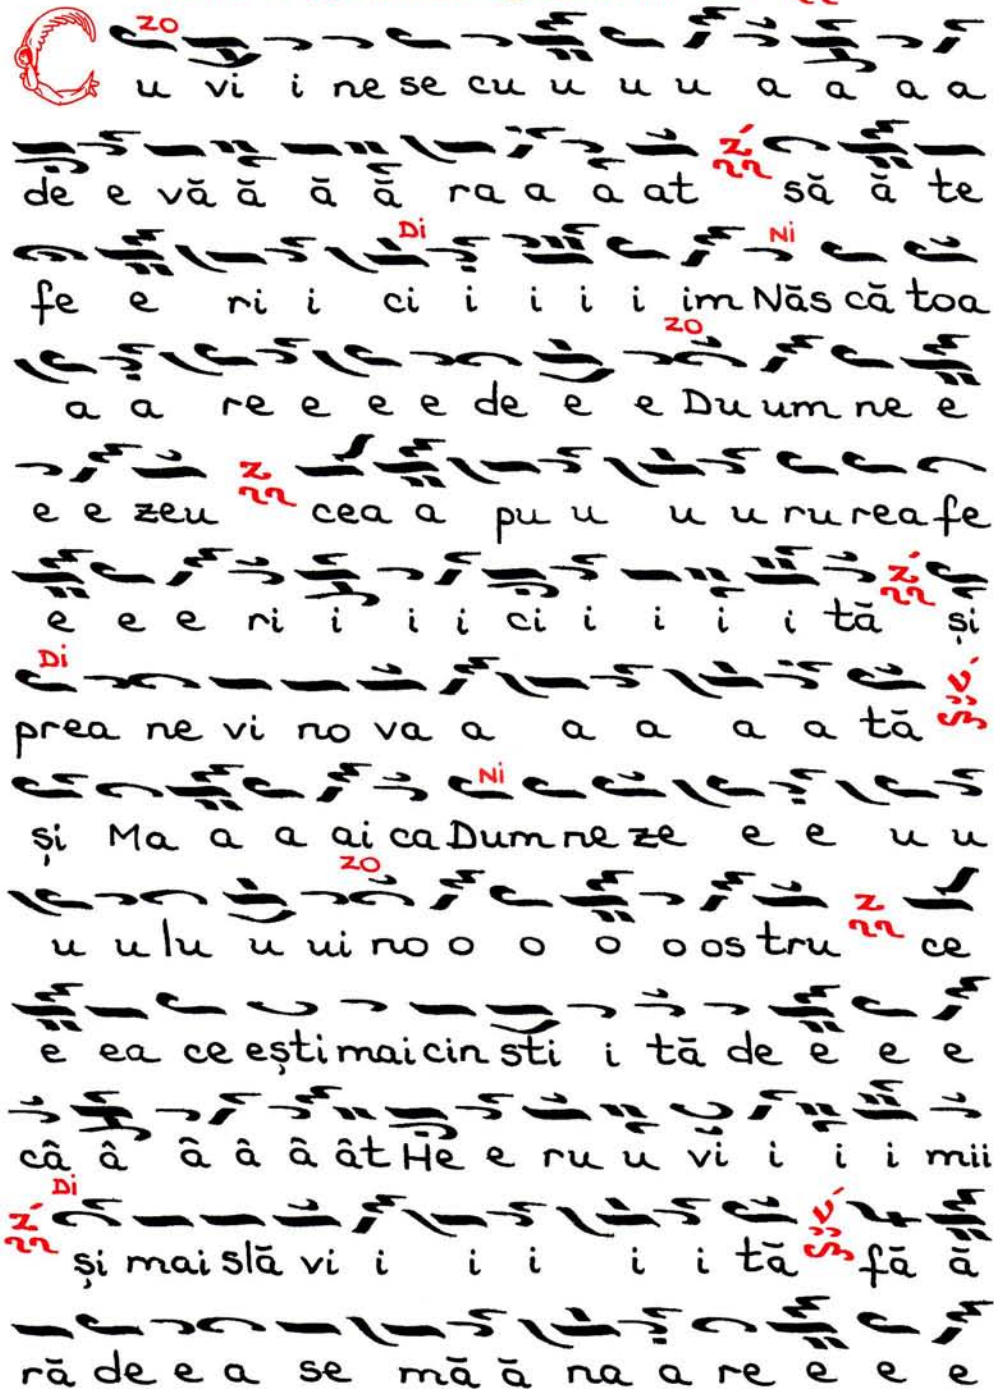 zo
C u vi i ne se cu u u u a a a a
de e vă ă ă ă ra a a at să ă te
Di Ni
fe e ri i ci i i i i im Năs că toa
zo
a a re e e e de e e Du um ne e
e e zeu cea a pu u u u ru rea fe
e e e ri i i i ci i i i i tă și
Di
prea ne vi no va a a a a a tă
Ni
și Ma a a ai ca Dum ne ze e e u u
zo
u u lu u ui no o o o o os tru ce
e ea ce ești mai cin sti i tă de e e e
câ â â â â ât He e ru u vi i i i mii
Di
și mai slă vi i i i i i tă fă ă
ră de e a se mă ă na a re e e e